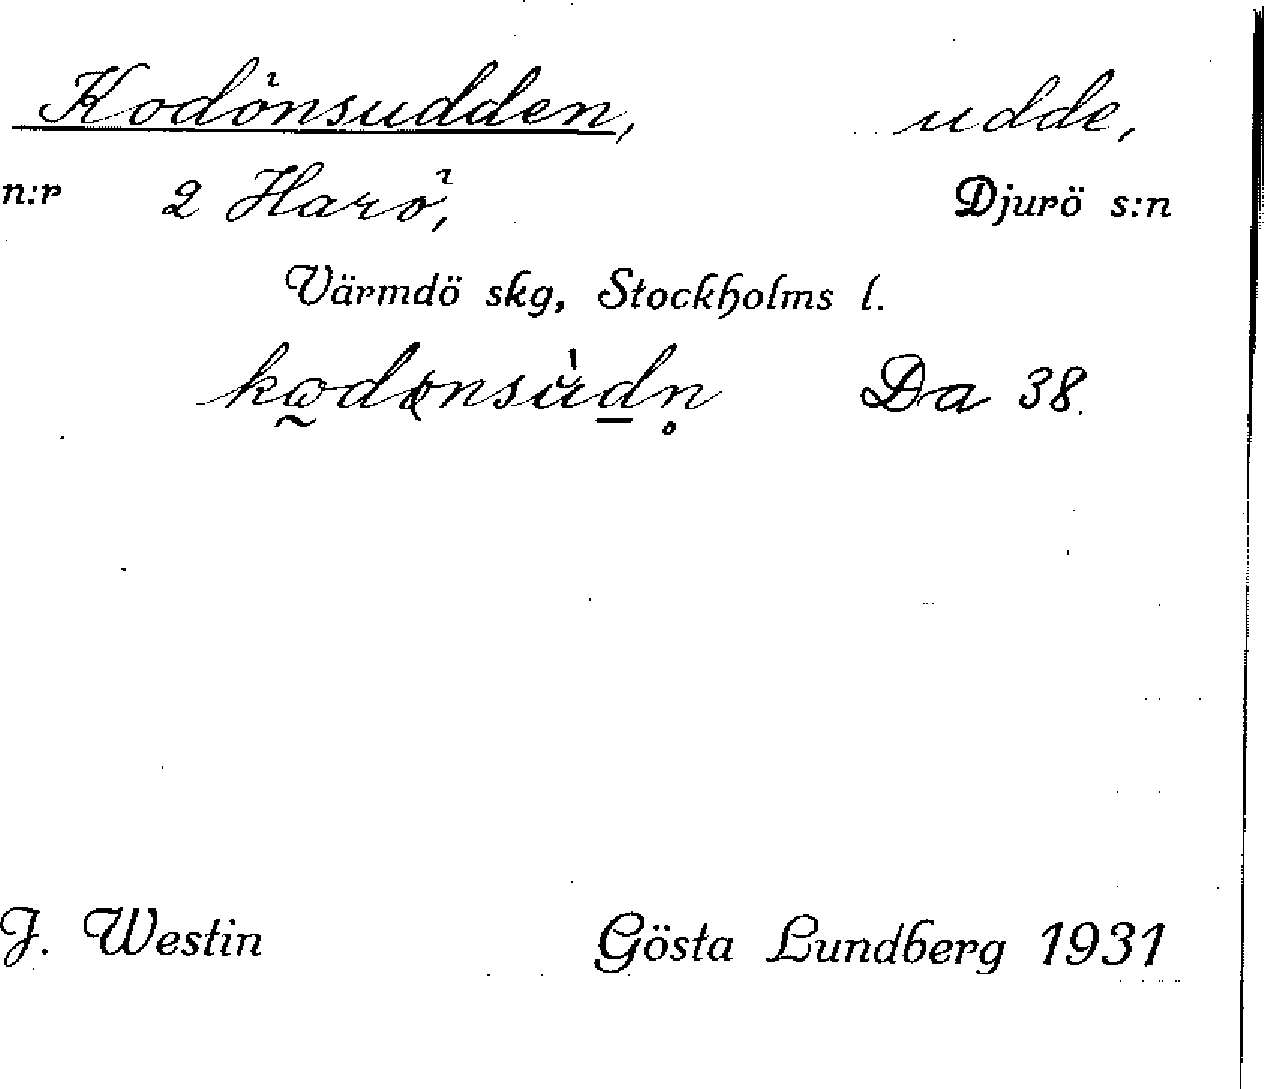 Kodönsudden, udde,
n:r 2 Harö, Djurö s:n
Värmdö skg, Stockholms l.
Da 38.
J. Westin Gösta Lundberg 1931